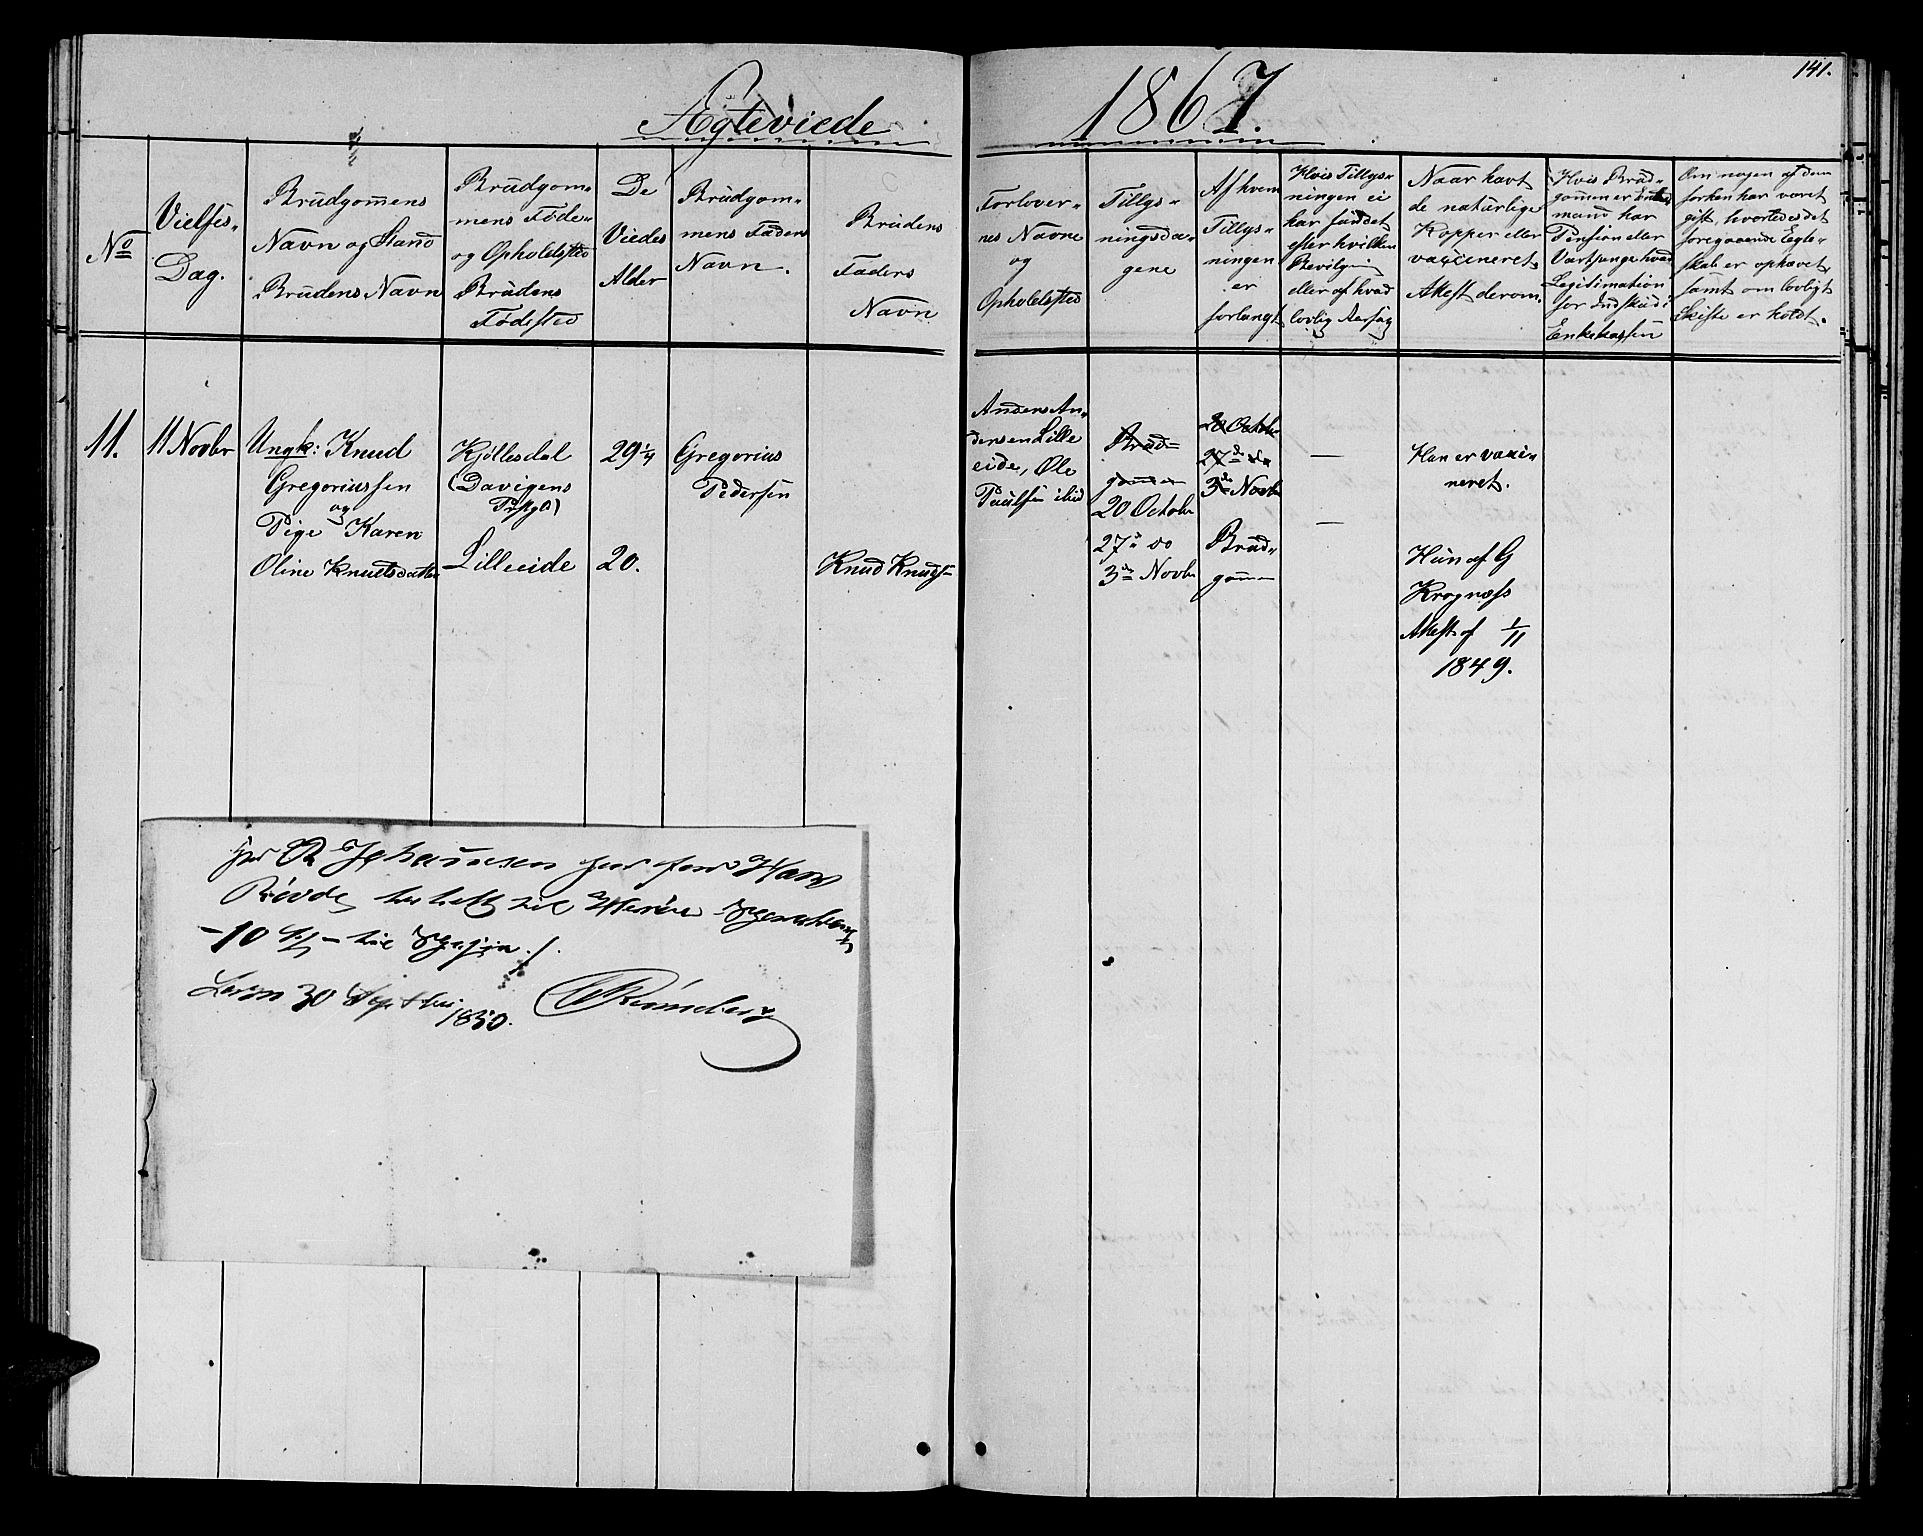 141.
Ægteviede
1867.
No
Vielses-
Dag.
Brudgommens
Navn og Stand
Brudens Navn
Brudgom-
mens Føde-
og Opholdsted
Brudens
Fødested
De
Viedes
Alder
Brudgom-
mens Faders
Navn.
Brudens
Faders
Navn
Forlover-
nes Navne
og
Opholdsted
Tillys-
ningsda-
gene
Af hvem
Tillys-
ningen
er
forlangt
Hvis Tillys-
ningen ei
har fundet
efter hvilken
Bevilgn
eller af hvad
lovlig Aarsag
Naar havt
de naturlige
Kopper eller
vaccineret.
Attest derom.
Hvis Brud-
gommen er Enke
mand har
Pension eller
Vartpenge hvad
Legitimation
for Indskud i
Enkekassen
Om nogen af dem
forhen har været
gift, hvorledes det
foregaaende Egte-
skab er ophævet,
samt om lovligt
Skifte er holdt.
11.
11 Novbr
Ungk: Knud
Gregoriussen
og
Pige Karen
Oline Knudsdatter
Kjøllesdal
(Davigens
Prstgd)
Lilleeide
29 1/4
20.
Gregorius
Pedersen
Knud Knuds
Anders An-
dersen Lille
eide, Ole
Paulsen ibid
Brud-
gommen
20 Octobr
27de do
3de Novbr
20 Octobr
27de do
3de Novbr
Brud-
gom
—
—
Han er vacci-
neret.
Hun af G
Krognæss
Attest af 1/11
1849.
Røvde
-10
30 Septbr
1850.